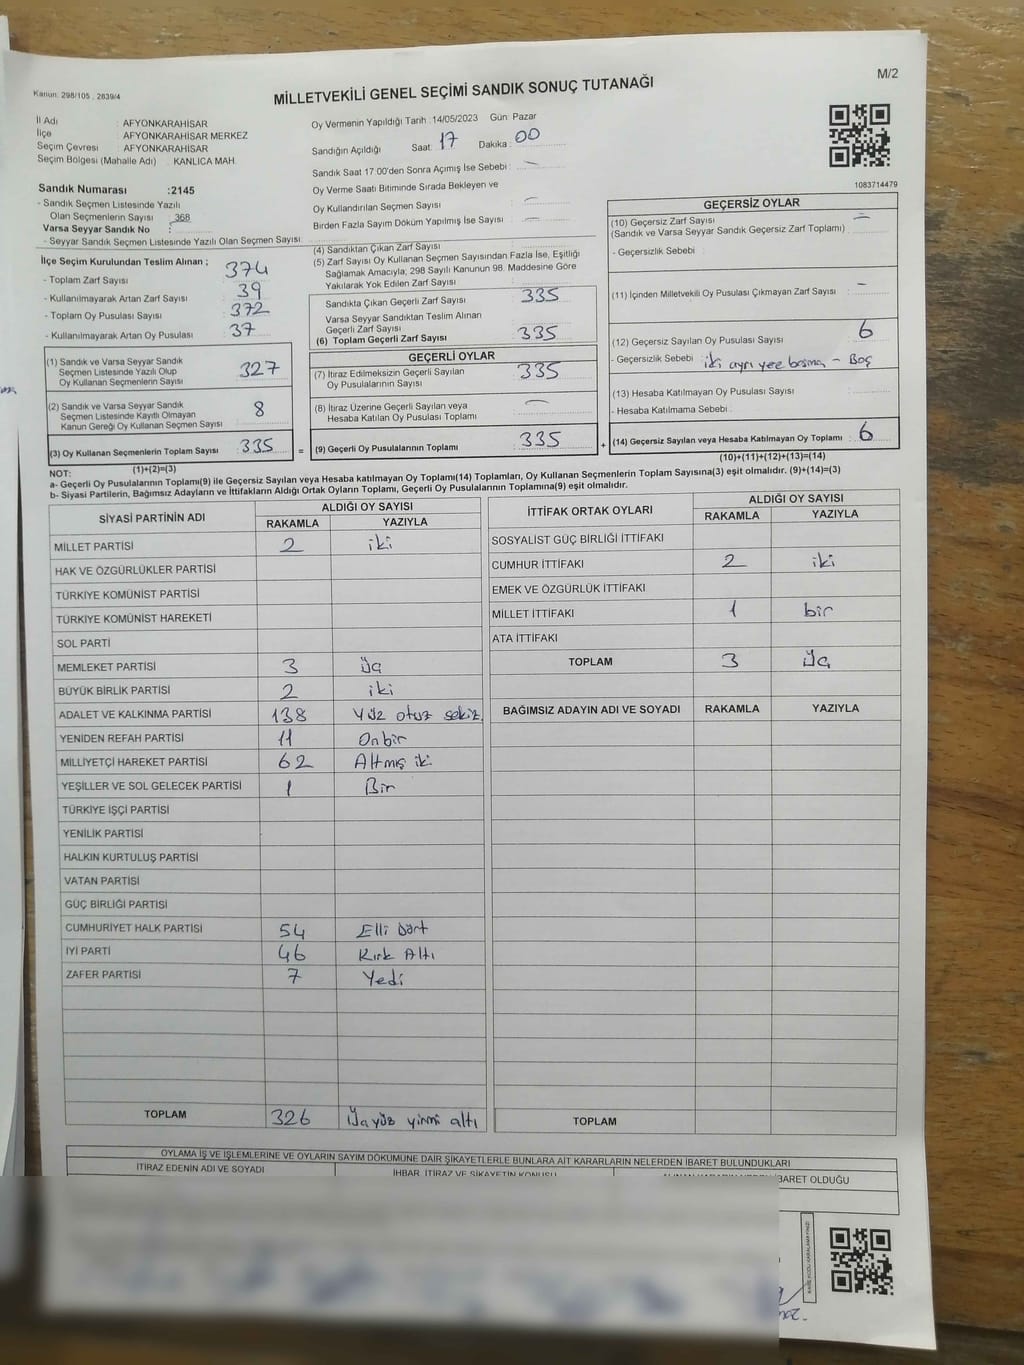 M/2
Kanun: 298/105 , 2839/4
MİLLETVEKİLİ GENEL SEÇİMİ SANDIK SONUÇ TUTANAĞI
İl Adı : AFYONKARAHİSAR
İlçe : AFYONKARAHİSAR MERKEZ
Seçim Çevresi : AFYONKARAHİSAR
Seçim Bölgesi (Mahalle Adı) : KANLICA MAH.
Oy Vermenin Yapıldığı Tarih :14/05/2023 Gün: Pazar
Sandığın Açıldığı Saat: 17 Dakika: 00
Sandık Saat 17:00'den Sonra Açımış İse Sebebi : —
Oy Verme Saati Bitiminde Sırada Bekleyen ve
Oy Kullandırılan Seçmen Sayısı : —
Birden Fazla Sayım Döküm Yapılmış İse Sayısı : —
1083714479
Sandık Numarası :2145
- Sandık Seçmen Listesinde Yazılı
Olan Seçmenlerin Sayısı : 368
Varsa Seyyar Sandık No :
- Seyyar Sandık Seçmen Listesinde Yazılı Olan Seçmen Sayısı:
İlçe Seçim Kurulundan Teslim Alınan ;
- Toplam Zarf Sayısı : 374
- Kullanılmayarak Artan Zarf Sayısı : 39
- Toplam Oy Pusulası Sayısı : 372
- Kullanılmayarak Artan Oy Pusulası : 37
(1) Sandık ve Varsa Seyyar Sandık
Seçmen Listesinde Yazılı Olup
Oy Kullanan Seçmenlerin Sayısı : 327
(2) Sandık ve Varsa Seyyar Sandık
Seçmen Listesinde Kayıtlı Olmayan
Kanun Gereği Oy Kullanan Seçmen Sayısı : 8
(3) Oy Kullanan Seçmenlerin Toplam Sayısı : 335
(1)+(2)=(3)
(4) Sandıktan Çıkan Zarf Sayısı :
(5) Zarf Sayısı Oy Kullanan Seçmen Sayısından Fazla İse, Eşitliği
Sağlamak Amacıyla; 298 Sayılı Kanunun 98. Maddesine Göre
Yakılarak Yok Edilen Zarf Sayısı :
Sandıkta Çıkan Geçerli Zarf Sayısı : 335
Varsa Seyyar Sandıktan Teslim Alınan
Geçerli Zarf Sayısı :
(6) Toplam Geçerli Zarf Sayısı : 335
GEÇERLİ OYLAR
(7) İtiraz Edilmeksizin Geçerli Sayılan
Oy Pusulalarının Sayısı : 335
(8) İtiraz Üzerine Geçerli Sayılan veya
Hesaba Katılan Oy Pusulası Toplamı : —
= (9) Geçerli Oy Pusulalarının Toplamı : 335 +
GEÇERSİZ OYLAR
(10) Geçersiz Zarf Sayısı : —
(Sandık ve Varsa Seyyar Sandık Geçersiz Zarf Toplamı)
- Geçersizlik Sebebi :
(11) İçinden Milletvekili Oy Pusulası Çıkmayan Zarf Sayısı : —
(12) Geçersiz Sayılan Oy Pusulası Sayısı : 6
- Geçersizlik Sebebi : iki ayrı yere basma - Boş
(13) Hesaba Katılmayan Oy Pusulası Sayısı :
- Hesaba Katılmama Sebebi :
(14) Geçersiz Sayılan veya Hesaba Katılmayan Oy Toplamı : 6
(10)+(11)+(12)+(13)=(14)
NOT:
a- Geçerli Oy Pusulalarının Toplamı(9) ile Geçersiz Sayılan veya Hesaba katılmayan Oy Toplamı(14) Toplamları, Oy Kullanan Seçmenlerin Toplam Sayısına(3) eşit olmalıdır. (9)+(14)=(3)
b- Siyasi Partilerin, Bağımsız Adayların ve İttifakların Aldığı Ortak Oyların Toplamı, Geçerli Oy Pusulalarının Toplamına(9) eşit olmalıdır.
SİYASİ PARTİNİN ADI ALDIĞI OY SAYISI
RAKAMLA YAZIYLA
MİLLET PARTİSİ 2 iki
HAK VE ÖZGÜRLÜKLER PARTİSİ
TÜRKİYE KOMÜNİST PARTİSİ
TÜRKİYE KOMÜNİST HAREKETİ
SOL PARTİ
MEMLEKET PARTİSİ 3 Üç
BÜYÜK BİRLİK PARTİSİ 2 iki
ADALET VE KALKINMA PARTİSİ 138 Yüz otuz sekiz
YENİDEN REFAH PARTİSİ 11 Onbir
MİLLİYETÇİ HAREKET PARTİSİ 62 Altmış iki
YEŞİLLER VE SOL GELECEK PARTİSİ 1 Bir
TÜRKİYE İŞÇİ PARTİSİ
YENİLİK PARTİSİ
HALKIN KURTULUŞ PARTİSİ
VATAN PARTİSİ
GÜÇ BİRLİĞİ PARTİSİ
CUMHURİYET HALK PARTİSİ 54 Elli Dört
İYİ PARTİ 46 Kırk Altı
ZAFER PARTİSİ 7 Yedi
TOPLAM 326 Üçyüz yirmi altı
İTTİFAK ORTAK OYLARI ALDIĞI OY SAYISI
RAKAMLA YAZIYLA
SOSYALİST GÜÇ BİRLİĞİ İTTİFAKI
CUMHUR İTTİFAKI 2 iki
EMEK VE ÖZGÜRLÜK İTTİFAKI
MİLLET İTTİFAKI 1 bir
ATA İTTİFAKI
TOPLAM 3 Üç
BAĞIMSIZ ADAYIN ADI VE SOYADI RAKAMLA YAZIYLA
TOPLAM
OYLAMA İŞ VE İŞLEMLERİNE VE OYLARIN SAYIM DÖKÜMÜNE DAİR ŞİKAYETLERLE BUNLARA AİT KARARLARIN NELERDEN İBARET BULUNDUKLARI
İTİRAZ EDENİN ADI VE SOYADI İHBAR, İTİRAZ VE ŞİKAYETİN KONUSU İBARET OLDUĞU
KARE KODU KARALAMAYINIZ!